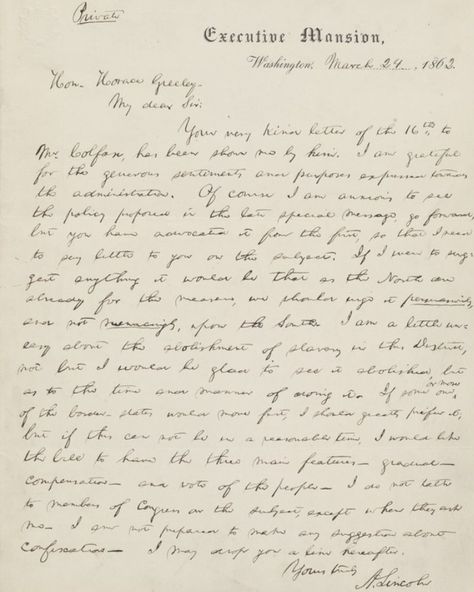 Private
Executive Mansion,
Washington, March 24, 1862.
Hon. Horace Greeley—
My dear Sir:
Your very kind letter of the 16th to
Mr. Colfax, has been shown me by him. I am grateful
for the generous sentiments and purposes expressed towards
the administration. Of course I am anxious to see
the policy proposed in the late special message, go forward,
but you have advocated it from the first, so that I need
to say little to you on the subject. If I were to sug-
gest anything it would be that as the North are
already for the measure, we should urge it persuasively,
and not menacingly, upon the South. I am a little un-
easy about the abolishment of slavery in this District,
not but I would be glad to see it abolished, but
as to the time and manner of doing it. If some one or more
of the border-states would move fast, I should greatly prefer it;
but if this can not be in a reasonable time, I would like
the bill to have the three main features— gradual—
compensation— and vote of the people— I do not talk
to members of Congress on the subject, except when they ask
me— I am not prepared to make any suggestion about
confiscation— I may drop you a line hereafter.
Yours truly
A. Lincoln